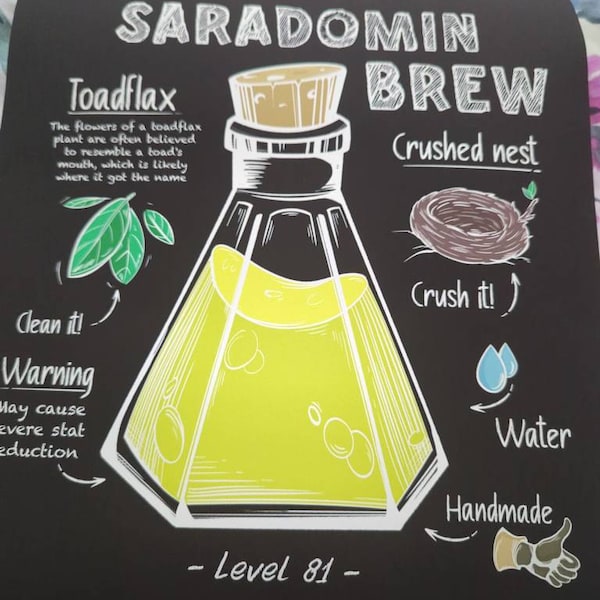 SARADOMIN
BREW
Toadflax
The flowers of a toadflax
plant are often believed
to resemble a toad's
mouth, which is likely
where it got the name
Clean it!
Crushed nest
Crush it!
Warning
May cause
evere stat
eduction
Water
Handmade
- Level 81 -